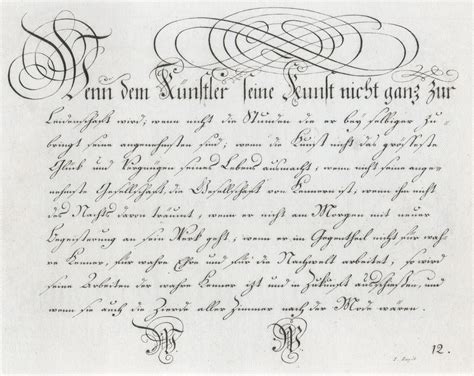 Wenn dem Künstler seine Kunst nicht ganz zur
Leidenschaft wird; wenn nicht die Stunden die er bey selbiger zu-
bringt seine angenehmsten sind; wenn die Kunst nicht das grösseste
Glück und Vergnügen seines Lebens ausmacht, wenn nicht seine ange-
nehmste Gesellschaft, die Gesellschaft von Kennern ist, wenn ihm nicht
des Nachts davon träumt, wenn er nicht am Morgen mit neuer
Begeisterung an sein Werk geht, wenn er im Gegentheil nicht für wah-
re Kenner, für wahre Ehre und für die Nachwelt arbeitet, so wird
seine Arbeiten der wahre Kenner izt und in Zukunft ausschiessen, und
wenn sie auch die Zierde aller Zimmer nach der Mode wären.
12.